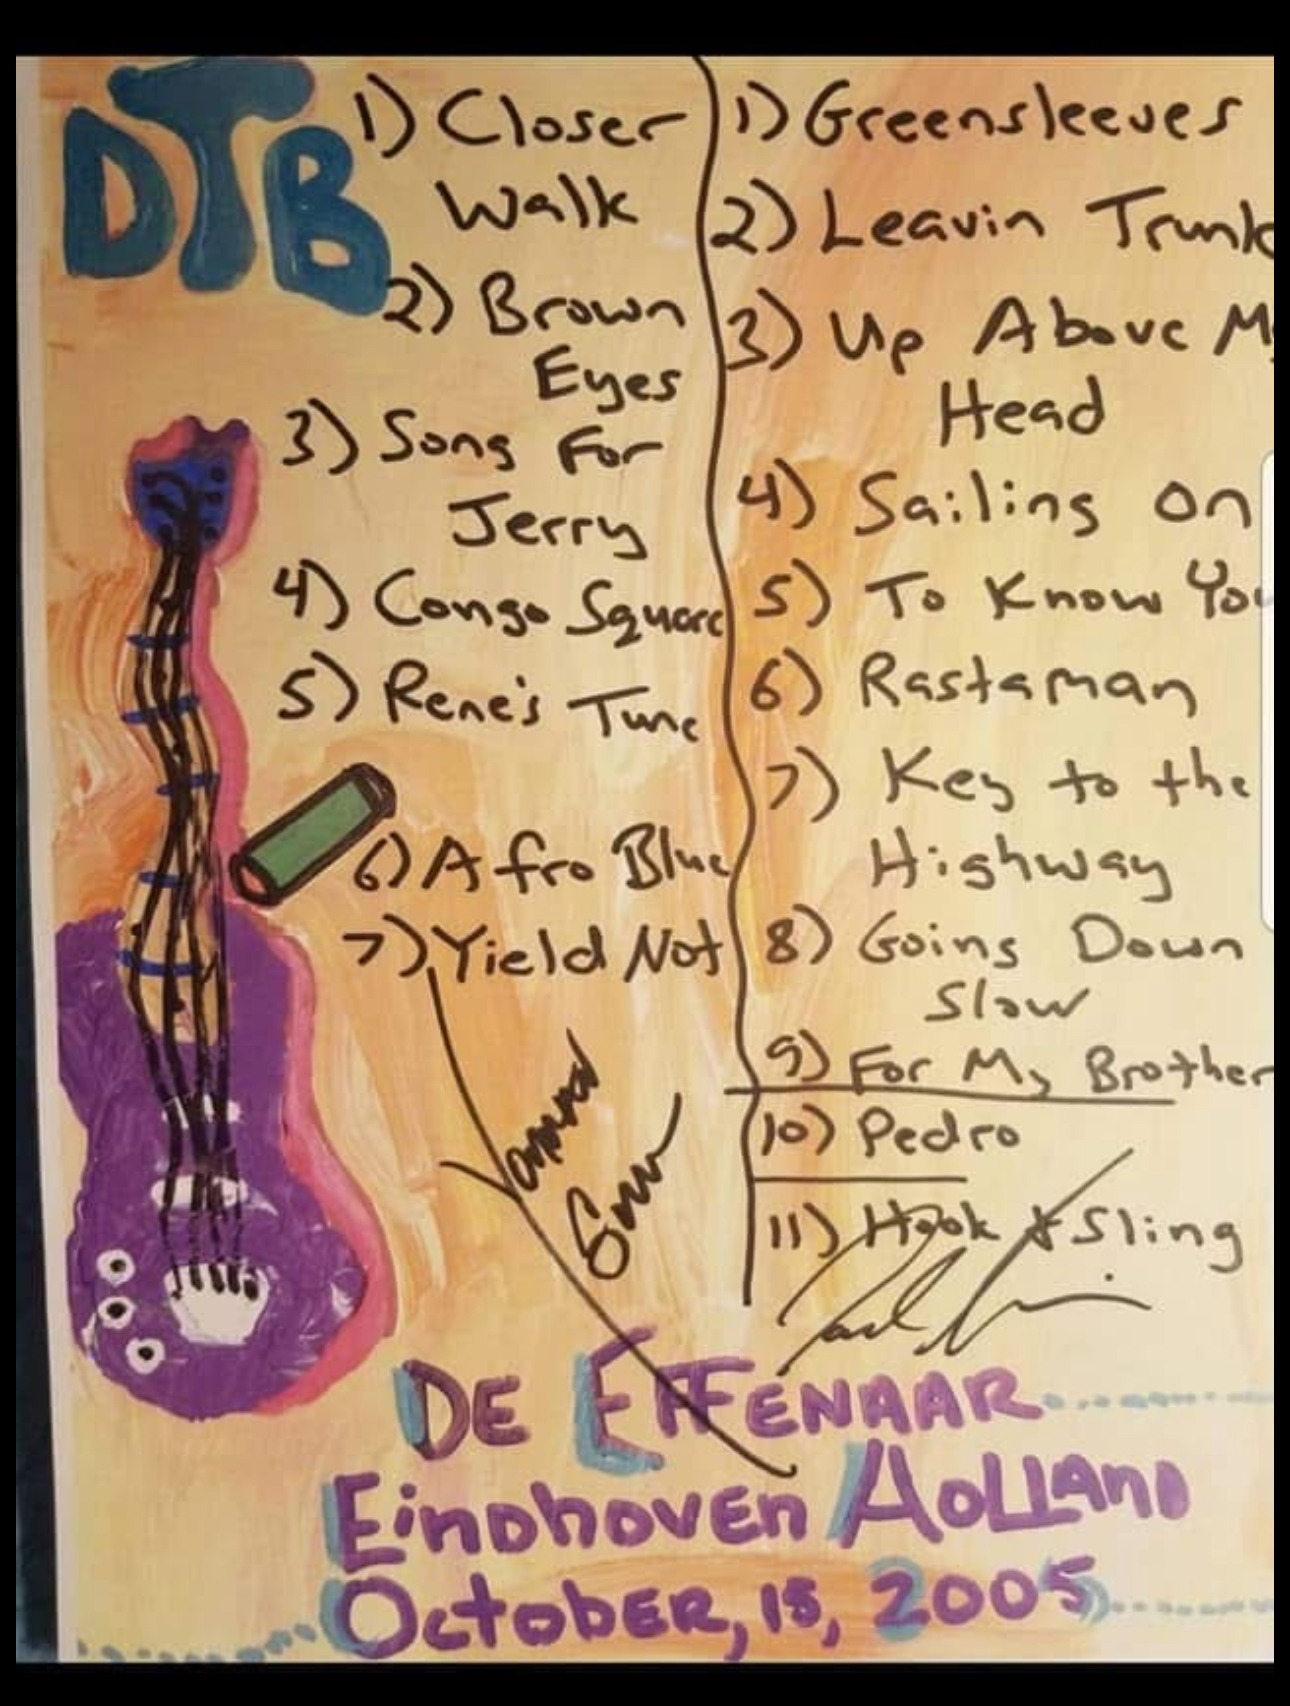 DTB
1) Closer
Walk
2) Brown
Eyes
3) Song For
Jerry
4) Congo Square
5) Rene's Tune
6) Afro Blue
7) Yield Not
1) Greensleeves
2) Leavin Trunk
3) Up Above My
Head
4) Sailing On
5) To Know You
6) Rastaman
7) Key to the
Highway
8) Going Down
Slow
9) For My Brother
10) Pedro
11) Hook & Sling
DE EFFENAAR
Eindhoven Holland
October, 15, 2005